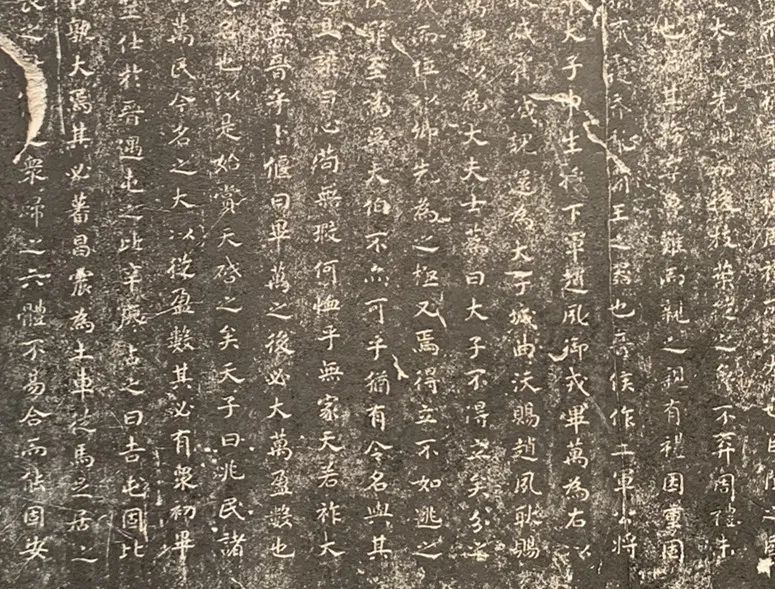 必先顛而後枝葉從之魯不弃周禮未
也君其務寧魯難而親之親有禮因重固
貳覆昏亂霸王之器也晉侯作二軍公將
大子申生將下軍趙夙御戎畢萬為右以
滅霍滅魏還為大子城曲沃賜趙夙耿賜
萬魏以為大夫士蒍曰大子不得立矣分之
城而位以卿先為之極又焉得立不如逃之
使罪至為吳大伯不亦可乎猶有令名與其
也且諺曰心苟無瑕何恤乎無家天若祚大
其無晉乎卜偃曰畢萬之後必大萬盈數也
大名也以是始賞天啓之矣天子曰兆民諸
萬民今名之大以從盈數其必有衆初畢
筮仕於晉遇屯之比辛廖占之曰吉屯固比
孰大焉其必蕃昌震為土車從馬足居之
長之衆歸之六體不易合而能固安